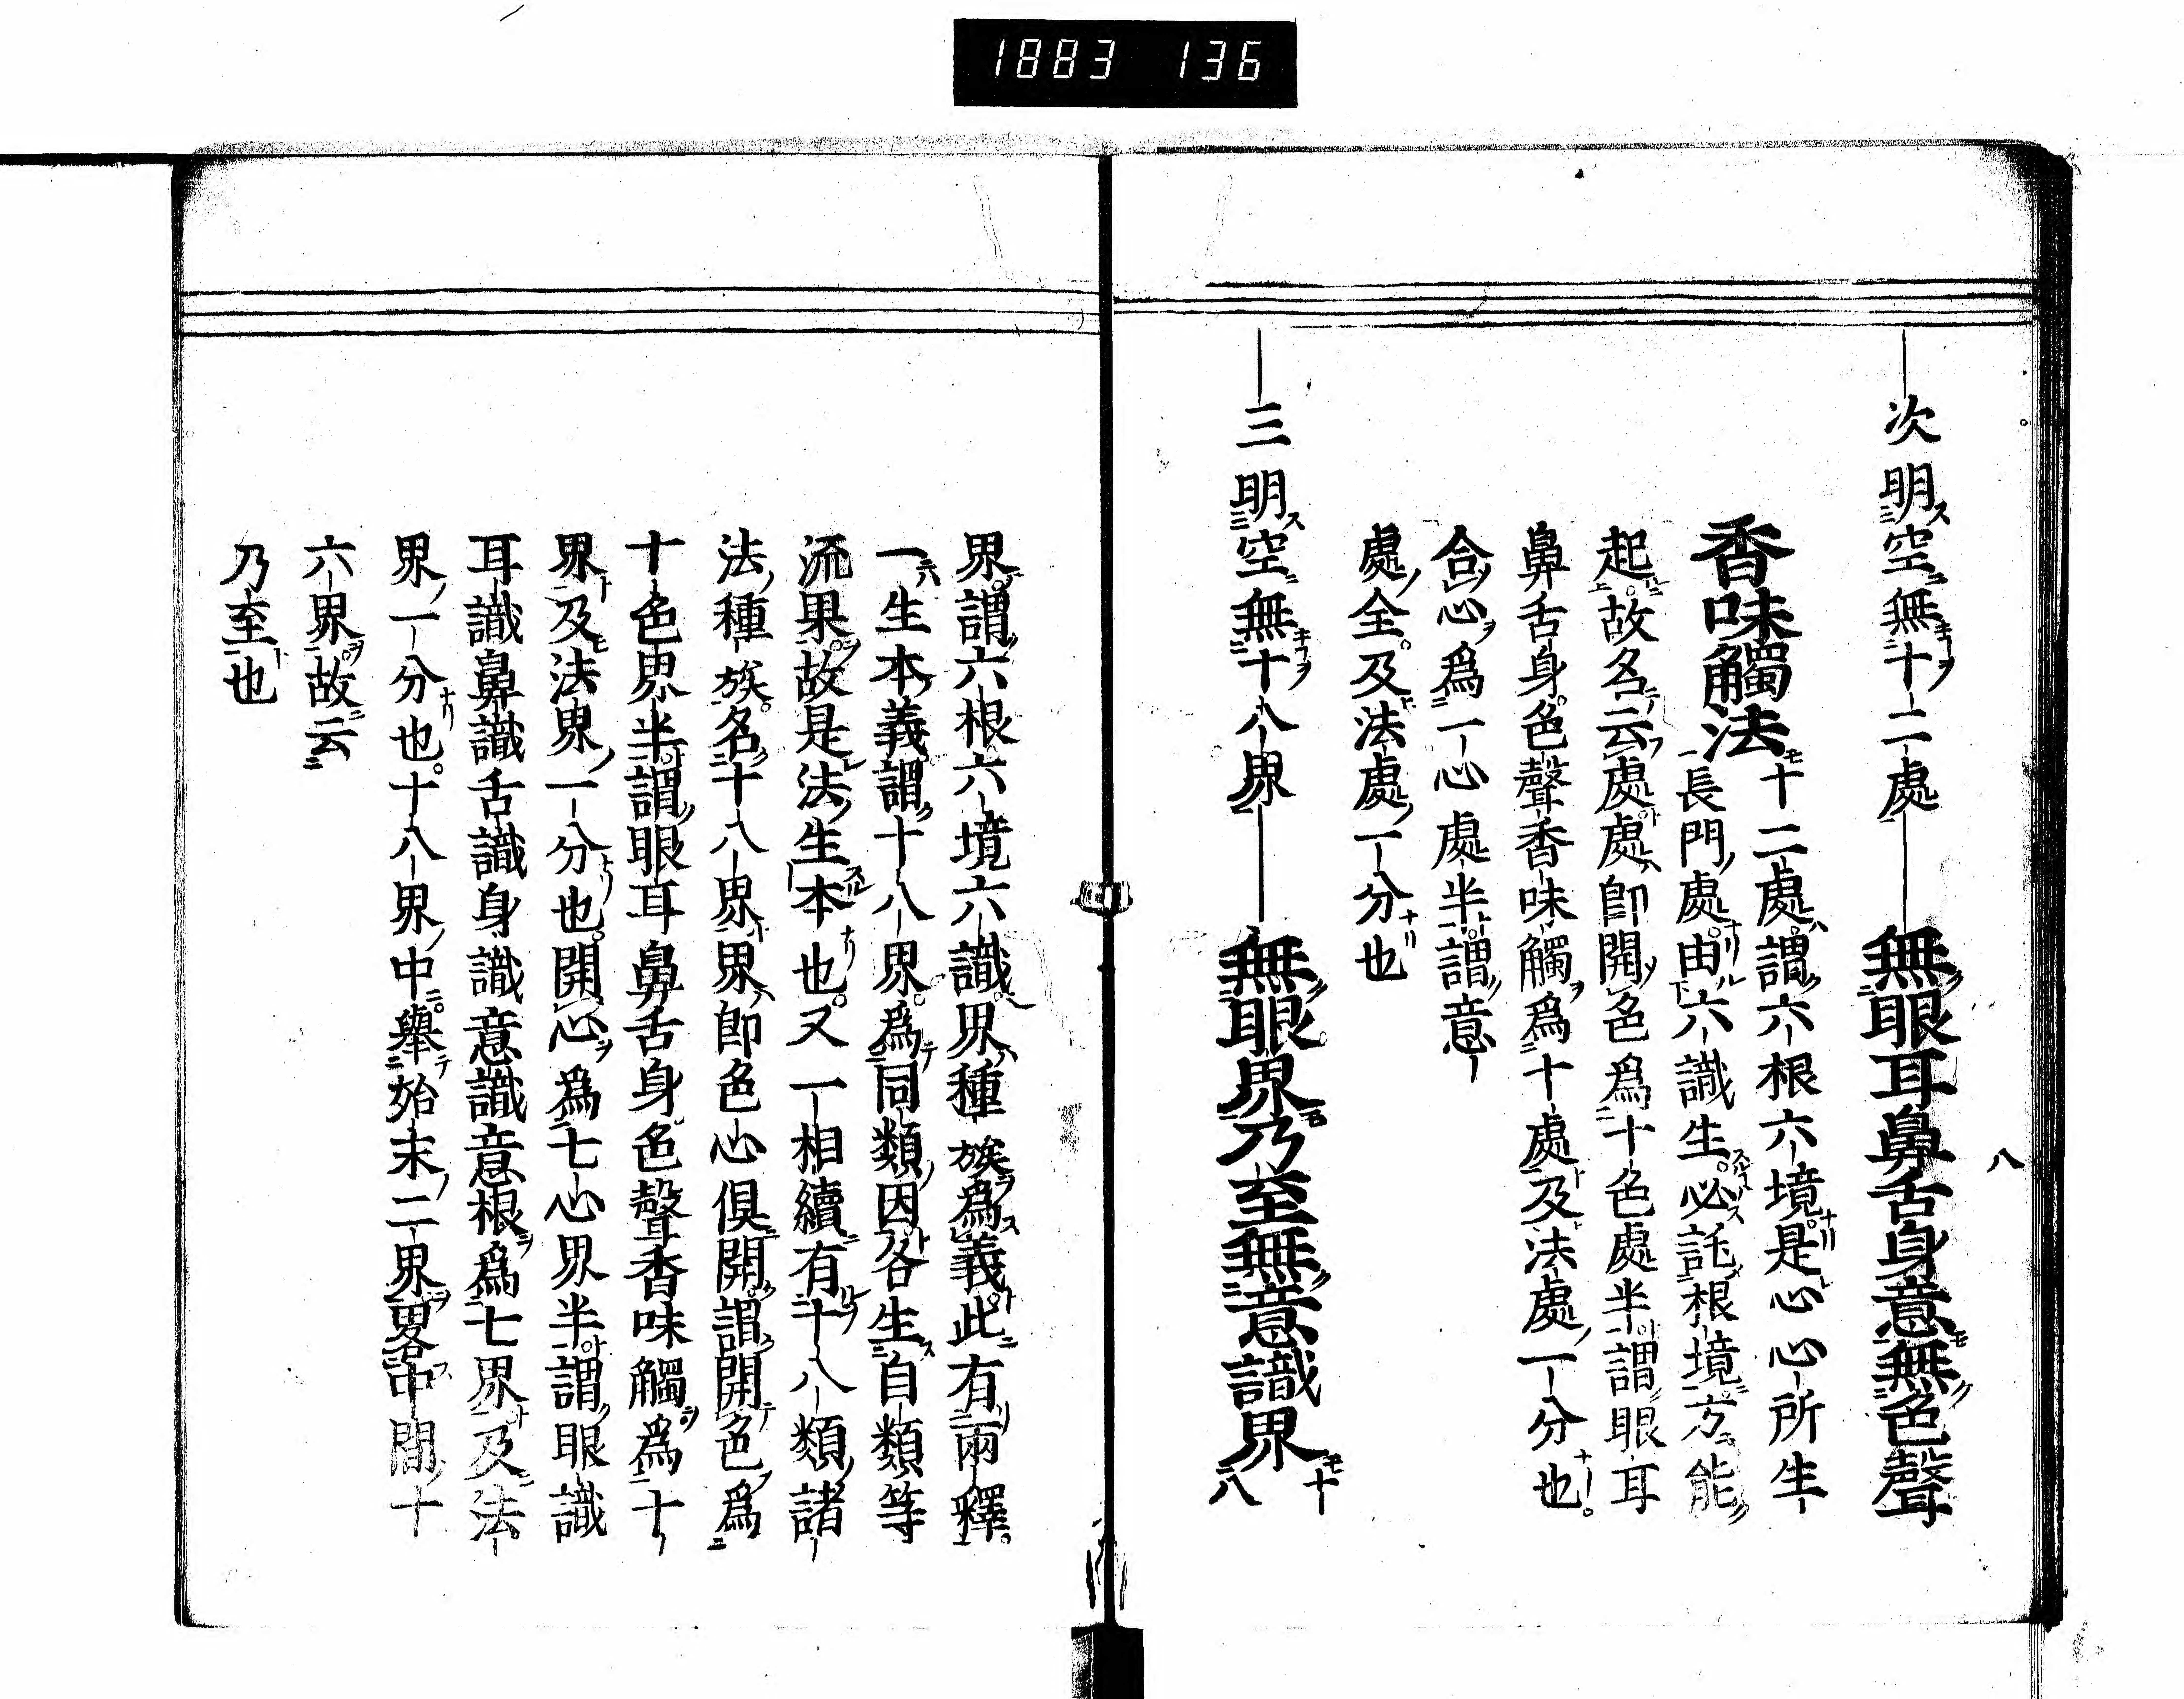 1883 136
八
次明空無十二處 無眼耳鼻舌身意無色聲
香味觸法
十二處謂六根六境是心心所生
長門處由六識生必託根境方能
起故名云處處即開色爲十色處半謂眼耳
鼻舌身色聲香味觸爲十處及法處一分也
合心爲一心處半謂意
處全及法處一分也
三明空無十八界 無眼界乃至無意識界 十八
界謂六根六境六識界種族爲義此有兩釋
一生本義謂十八界爲同類因各生自類等
流果故是法生本也又一相續有十八類諸
法種族名十八界界即色心俱開謂開色爲
十色界半謂眼耳鼻舌身色聲香味觸爲十
界及法界一分也開心爲七心界半謂眼識
耳識鼻識舌識身識意識意根爲七界及法
界一分也十八界中舉始末二界畧中間十
六界故云
乃至也